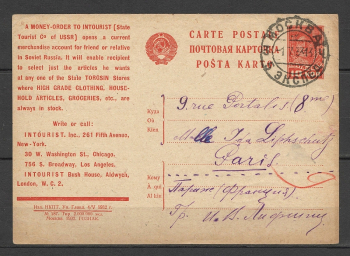 "A MONEY-ORDER TO INTOURIST [State
Tourist Cº of USSR] opens a current
merchandise account for friend or relative
in Soviet Russia. It will enable recipient
to select just the articles he wants
at any one of the State TORGSIN Stores
where HIGH GRADE CLOTHING, HOUSE-
HOLD ARTICLES, GROCERIES, etc.. are
always in stock.
Write or call:
INTOURIST, Inc. 261 Fifth Avenue,
New-York.
30 W. Washington St., Chicago.
756 S. Broadway, Los Angeles.
INTOURIST Bush House, Aldwych,
London, W. C. 2.
CARTE POSTALE
ПОЧТОВАЯ КАРТОЧКА
POŠTA KARTO
МОСКВА
Куда
Où
Kien
9 rue Portalis (8me)
Melle
Paris
Кому
À qui
Al kiu
Париж (Франция)
Гр.